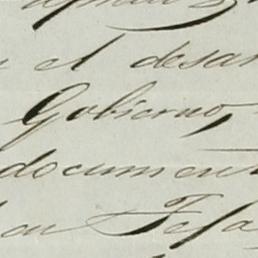 el desar
Gobierno,
documen
en Tesa